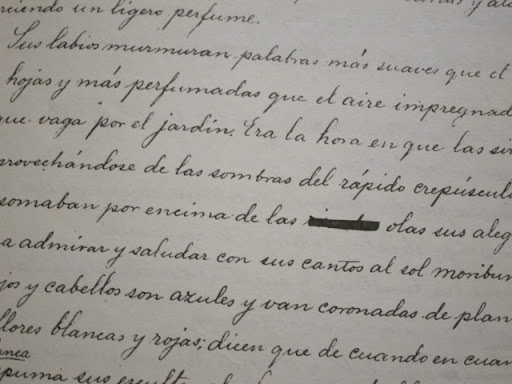 ciendo un ligero perfume.
Sus labios murmuran palabras más suaves que el
hojas y más perfumadas que el aire impregnad
que vaga por el jardín. Era la hora en que las sir
provechándose de las sombras del rápido crepúscul
somaban por encima de las olas sus aleg
a admirar y saludar con sus cantos al sol moribun
jos y cabellos son azules y van coronadas de plan
flores blancas y rojas; dicen que de cuando en cuan
anca
puma sus